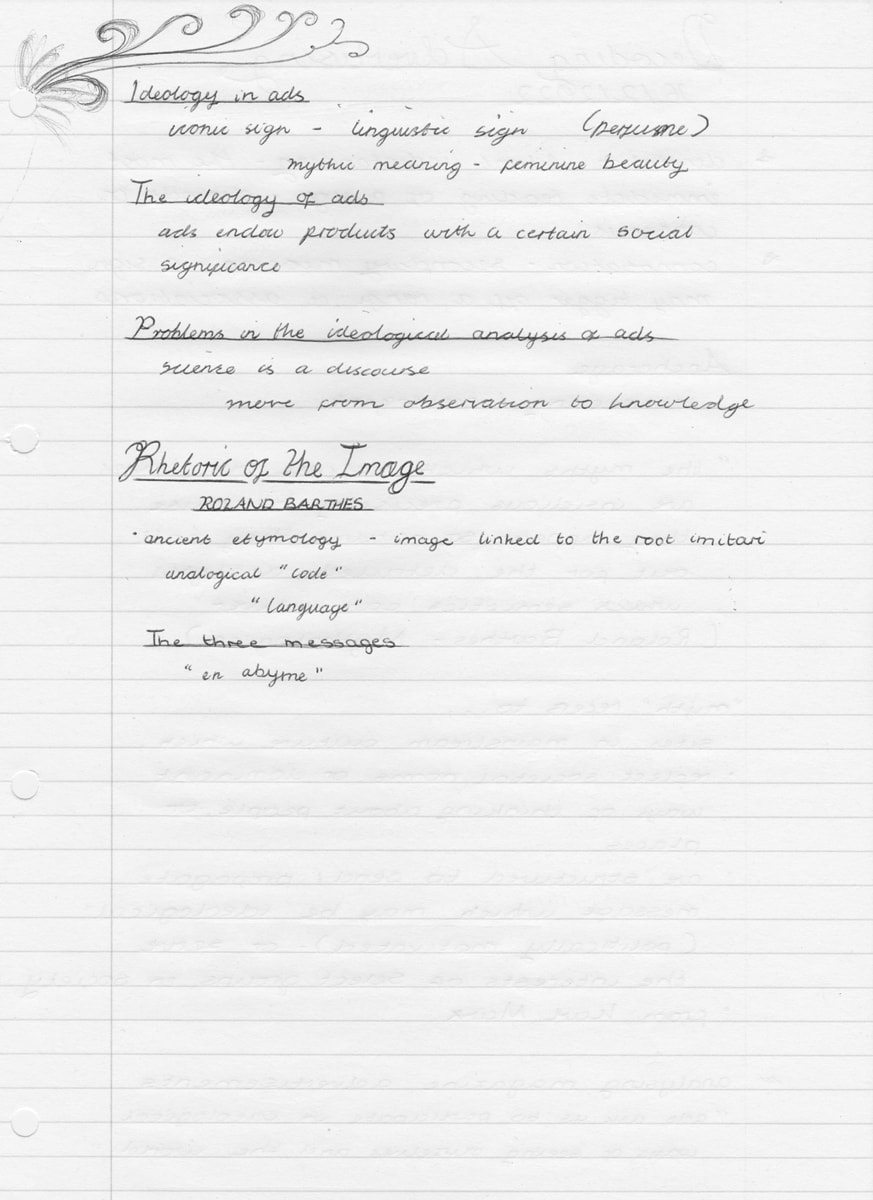 Ideology in ads
iconic sign - linguistic sign (perfume)
mythic meaning - feminine beauty
The ideology of ads
ads endow products with a certain social
significance
Problems in the ideological analysis of ads
science is a discourse
move from observation to knowledge
Rhetoric of the Image
ROLAND BARTHES
· ancient etymology - image linked to the root imitari
analogical "code"
"language"
The three messages
"en abyme"